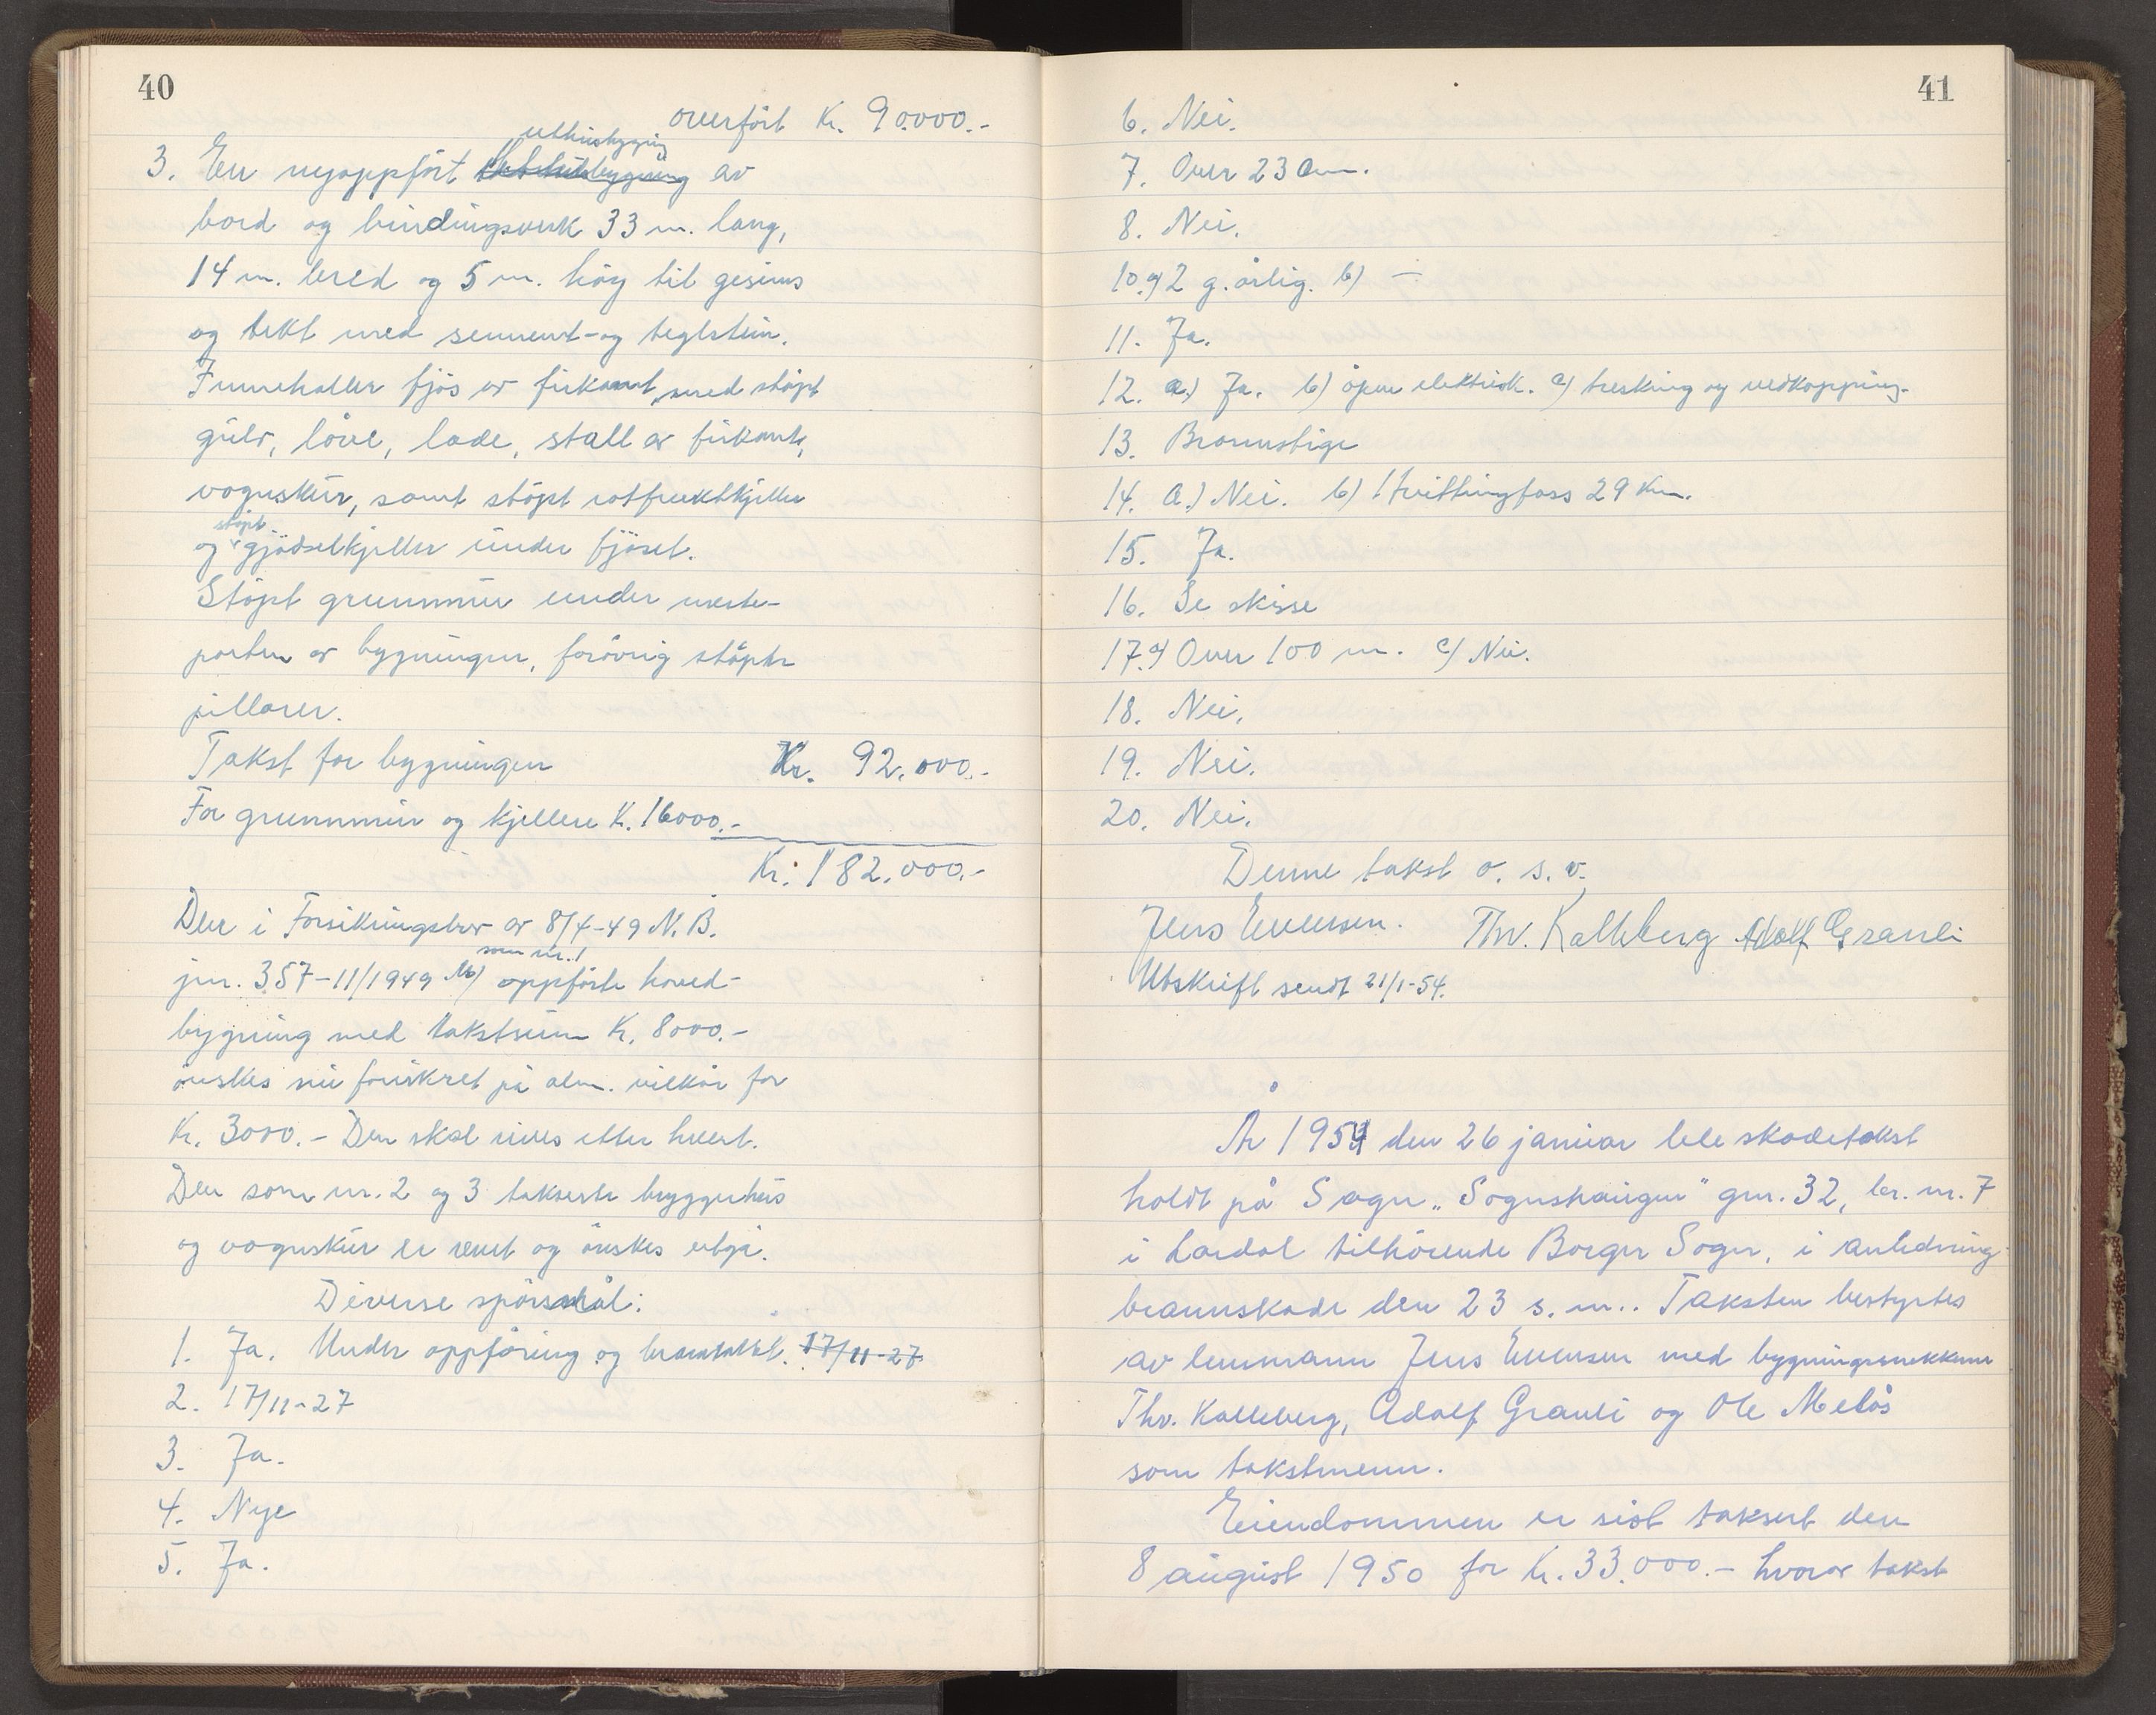 40
overfört Kr. 90.000.-
uthusbygning
3. En nyoppfört av
bord og bindingsverk 33 m. lang,
14 m. bred og 5 m. höy til gesims
og tekt med sement- og teglstein.
Inneholder fjös av firkant, med stöpt
gulv, låve, lade, stall av firkant,
vognskur, samt stöpt rotfruktkjeller
stöpt
og gjödselkjeller under fjöset.
Stöpt grunnmur under meste-
parten av bygningen, forövrig stöpte
pillarer.
Takst for bygningen Kr. 92.000.-
For grunnmur og kjellere Kr. 16000.-
Kr. 182.000.-
Den i Forsikringsbrev av 8/4-49 N.B.
som nr. 1
jnr. 357-11/1949 oppförte hoved-
bygning med takstsum Kr. 8000.-
önskes nu forsikret på alm. vilkår for
Kr. 3000.- Den skal rives etter hvert.
Den som nr. 2 og 3 takserte bryggerhus
og vognskur er revet og önskes utgå.
Diverse spörsmål:
1. Ja. Under oppföring og branntakst. 17/11-27
2. 17/11-27
3. Ja.
4. Nye
5. Ja.
41
6. Nei.
7. Over 23 cm.
8. Nei.
10. a) 2 g. årlig. b) —
11. Ja.
12. a.) Ja. b) åpen elektrisk. c) tresking og vedkapping.
13. Brannstige
14. a.) Nei. b) Hvittingfoss 29 km.
15. Ja.
16. Se skisse
17. a) Over 100 m. c) Nei.
18. Nei.
19. Nei.
20. Nei.
Denne takst o. s. v.
Jens Evensen. Thv. Kalleberg Adolf Granli
Utskrift sendt 21/1-54.
År 1954 den 26 januar ble skadetakst
holdt på Sogn „Sognshaugen" gnr. 32, br. nr. 7
i Lardal tilhörende Borger Sogn, i anledning
brannskade den 23 s. m.. Taksten bestyrtes
av lensmann Jens Evensen med bygningssnekkerne
Thv. Kalleberg, Adolf Granli og Ole Melås
som takstmenn.
Eiendommen er sist taksert den
8 august 1950 for Kr. 33.000.- hvorav takst